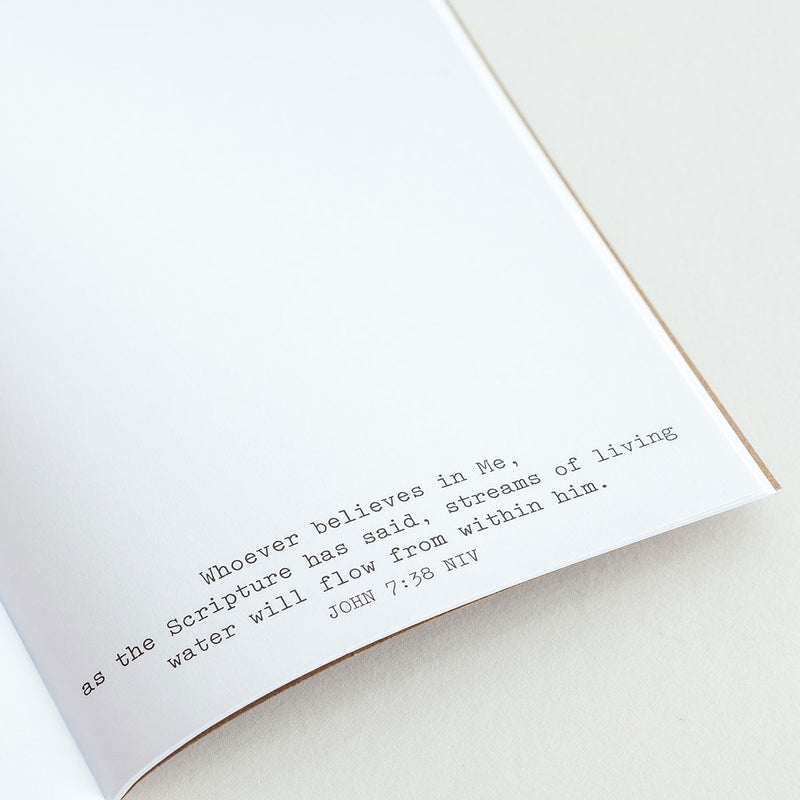 Whoever believes in Me,
as the Scripture has said, streams of living
water will flow from within him.
JOHN 7:38 NIV